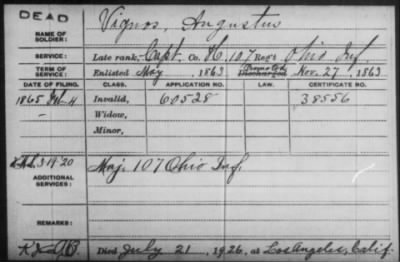 DEAD
NAME OF SOLDIER: Vignos Augustus
SERVICE: Late rank, Capt. Co. H, 107 Reg't Ohio Inf.
TERM OF SERVICE: Enlisted May, 1863 Discharged Nov. 27, 1863
DATE OF FILING. CLASS. APPLICATION NO. LAW. CERTIFICATE NO.
1865 Invalid, 60528 38556
Widow,
Minor,
ADDITIONAL SERVICES: Maj. 107 Ohio Inf.
REMARKS:
Died July 21, 1926, at Los Angeles, Calif.